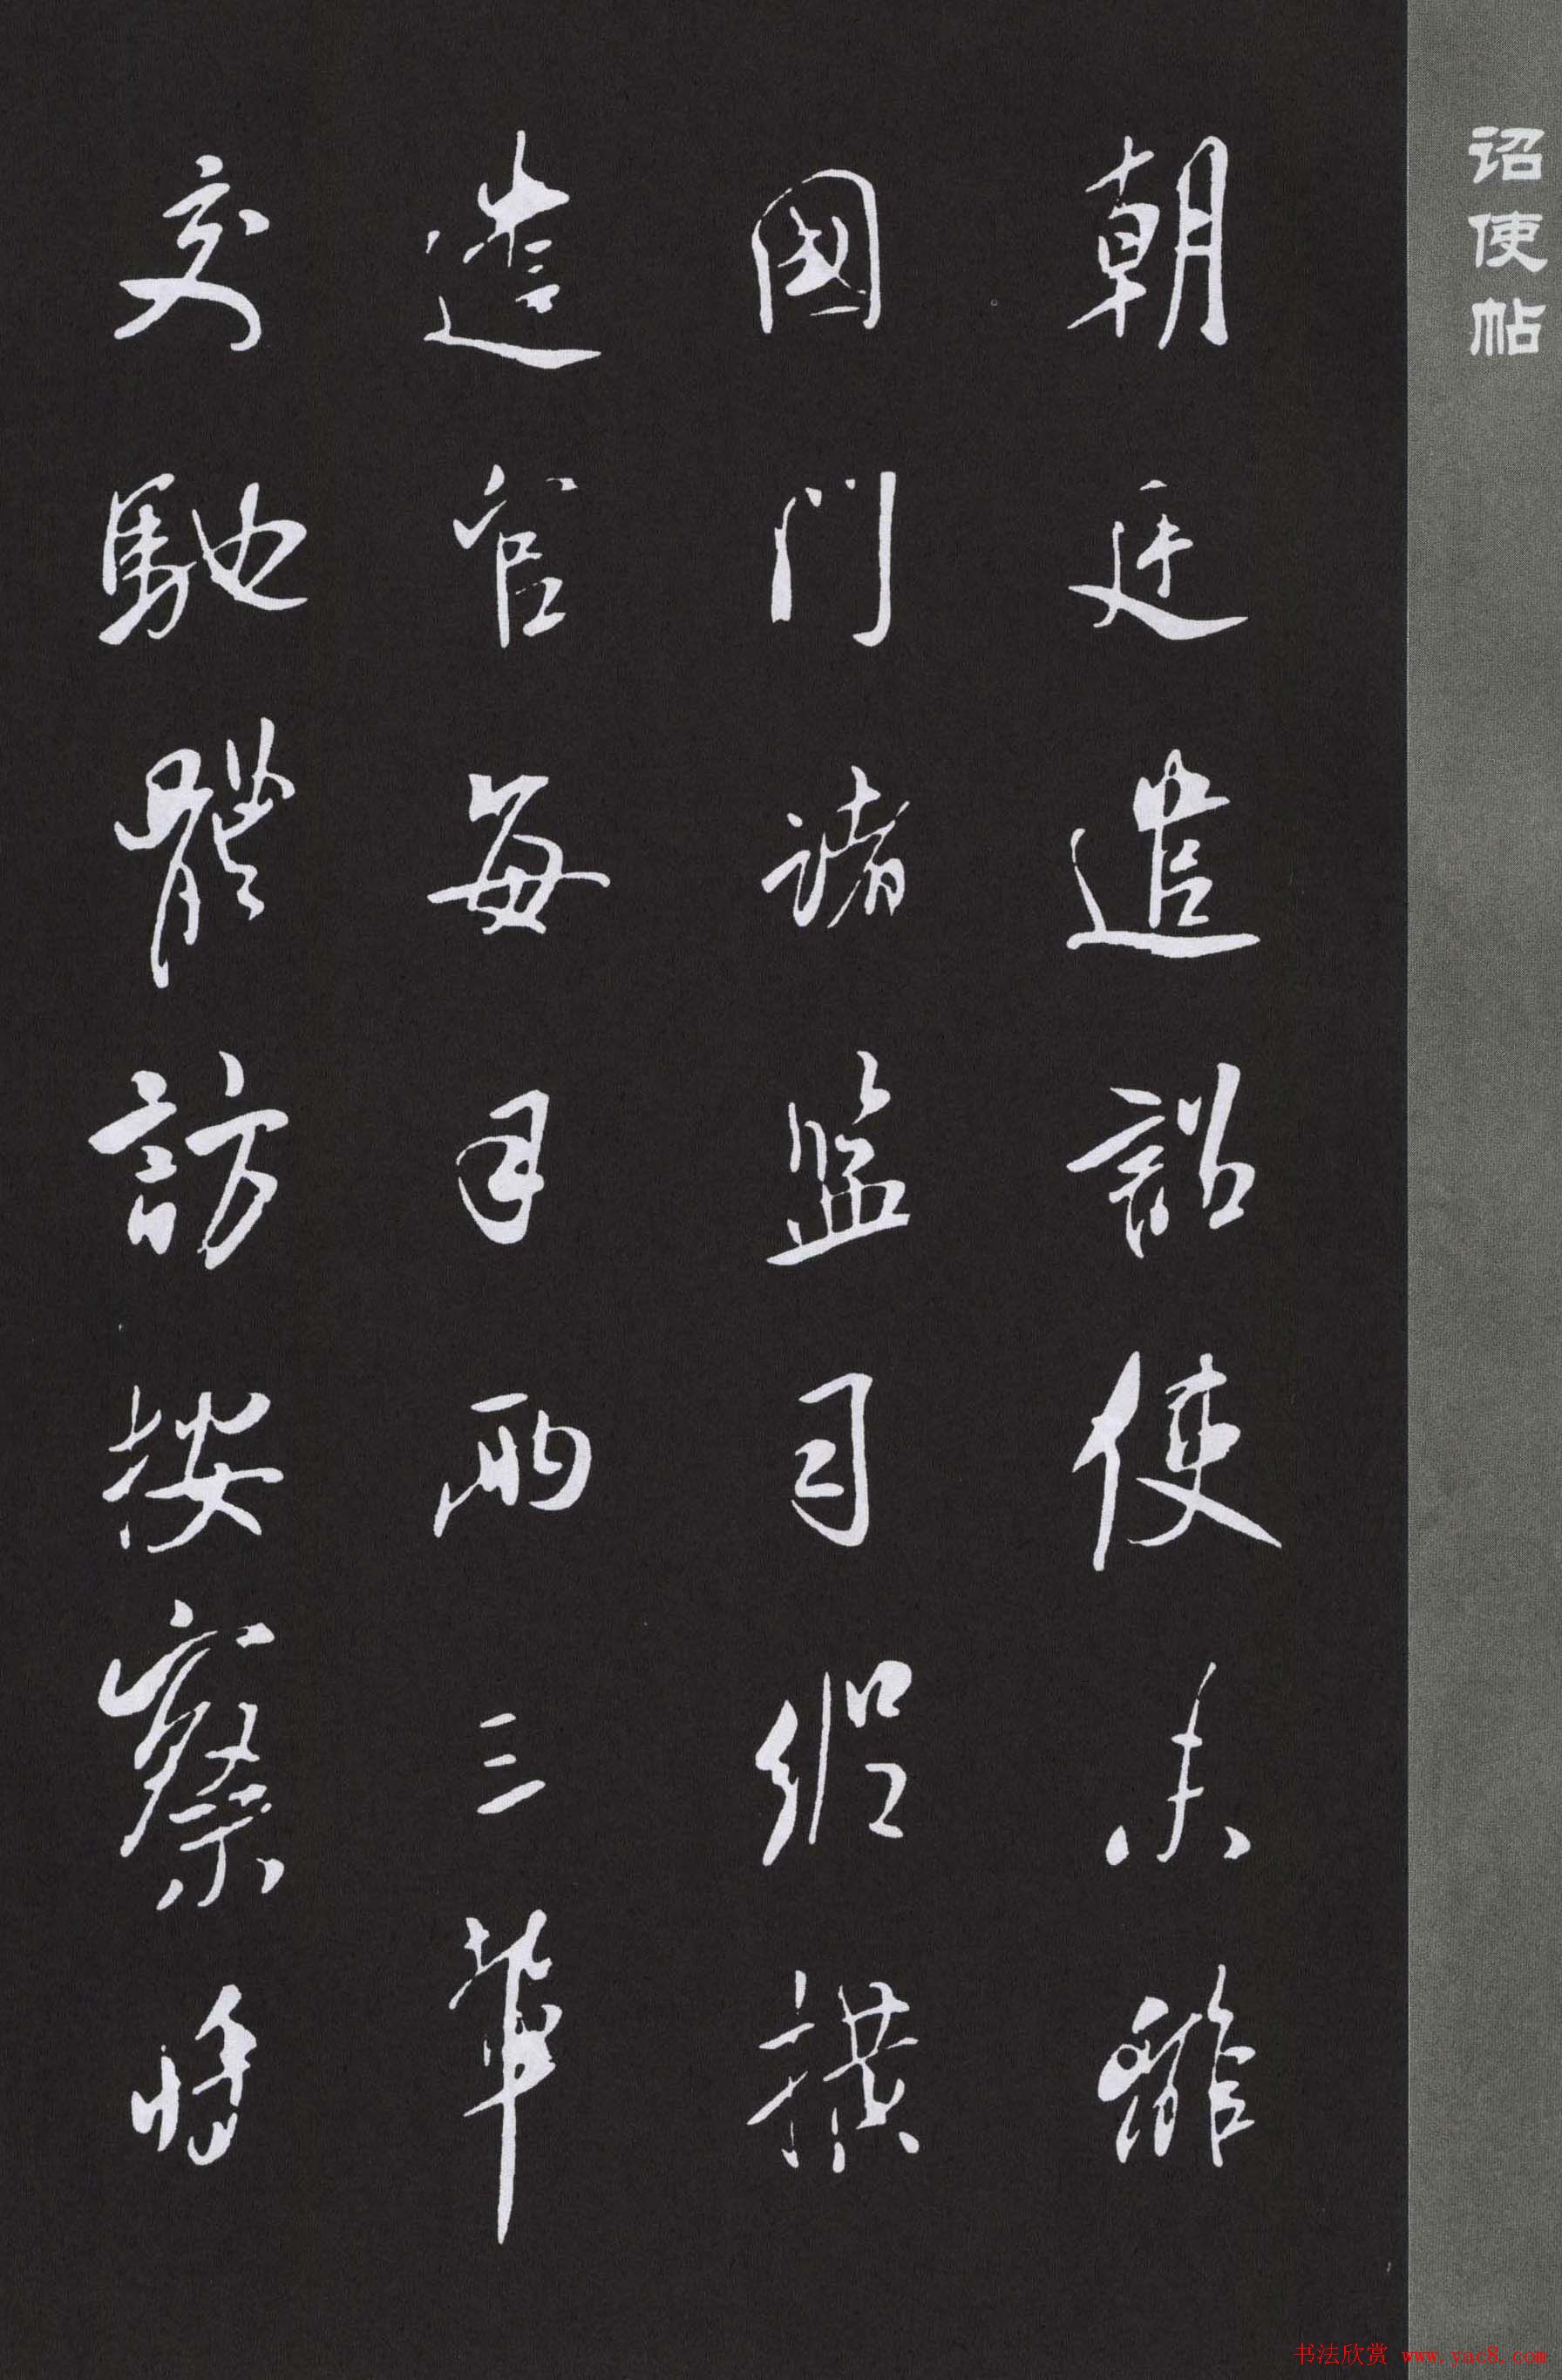 诏使帖
朝廷遣詔使未離
國門諸監司縱橫
遣官每月兩三輩
交馳體訪按察將
书法欣赏 www.yac8.com